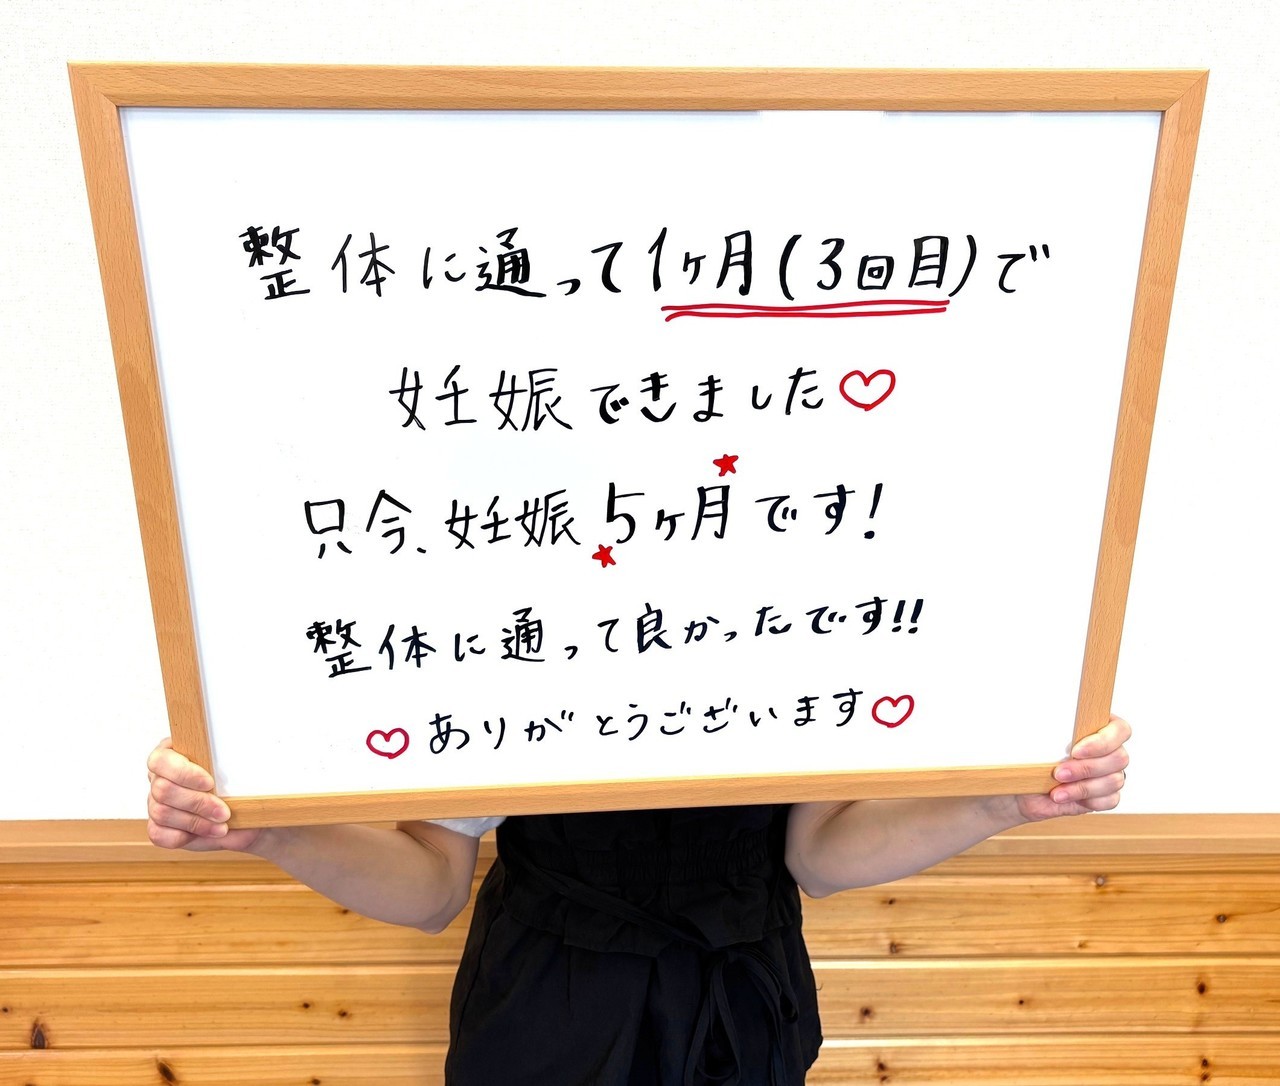 整体に通って1ヶ月(3回目)で
妊娠できました♡
只今、妊娠5ヶ月です!
整体に通って良かったです!!
♡ありがとうございます♡